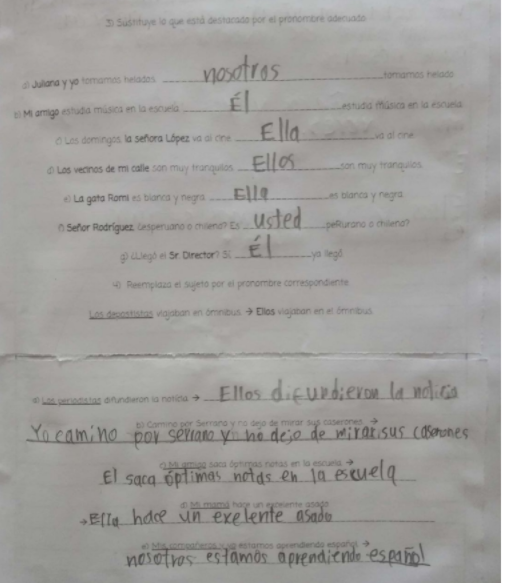 3) Sustituye lo que está destacado por el pronombre adecuado
a) Juliana y yo tomamos helados. nosotros tomamos helado
b) Mi amigo estudia música en la escuela Él estudia música en la escuela
c) Los domingos, la señora López va al cine Ella va al cine
d) Los vecinos de mi calle son muy tranquilos Ellos son muy tranquilos
e) La gata Romi es blanca y negra Ella es blanca y negra
f) Señor Rodríguez, ¿es peruano o chileno? Es usted peruano o chileno?
g) ¿Llegó el Sr. Director? Sí Él ya llegó
4) Reemplaza el sujeto por el pronombre correspondiente
Los deportistas viajaban en ómnibus → Ellos viajaban en el ómnibus
a) Los periodistas difundieron la noticia → Ellos difundieron la noticia
b) Camino por Serrano y no dejo de mirar sus caserones →
Yo camino por serrano y no dejo de mirar sus caserones
c) Mi amigo saca óptimas notas en la escuela →
El saca óptimas notas en la escuela
d) Mi mamá hace un excelente asado
→ Ella hace un exelente asado
e) Mis compañeros y yo estamos aprendiendo español →
nosotros estamos aprendiendo español